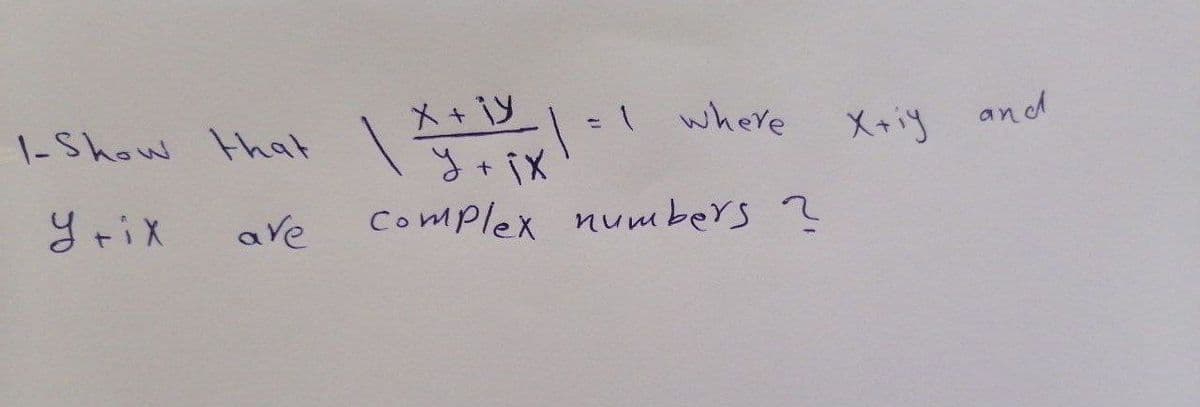 1- Show that | x + iy / y + ix | = 1 where x+iy and
y+ix are complex numbers ?